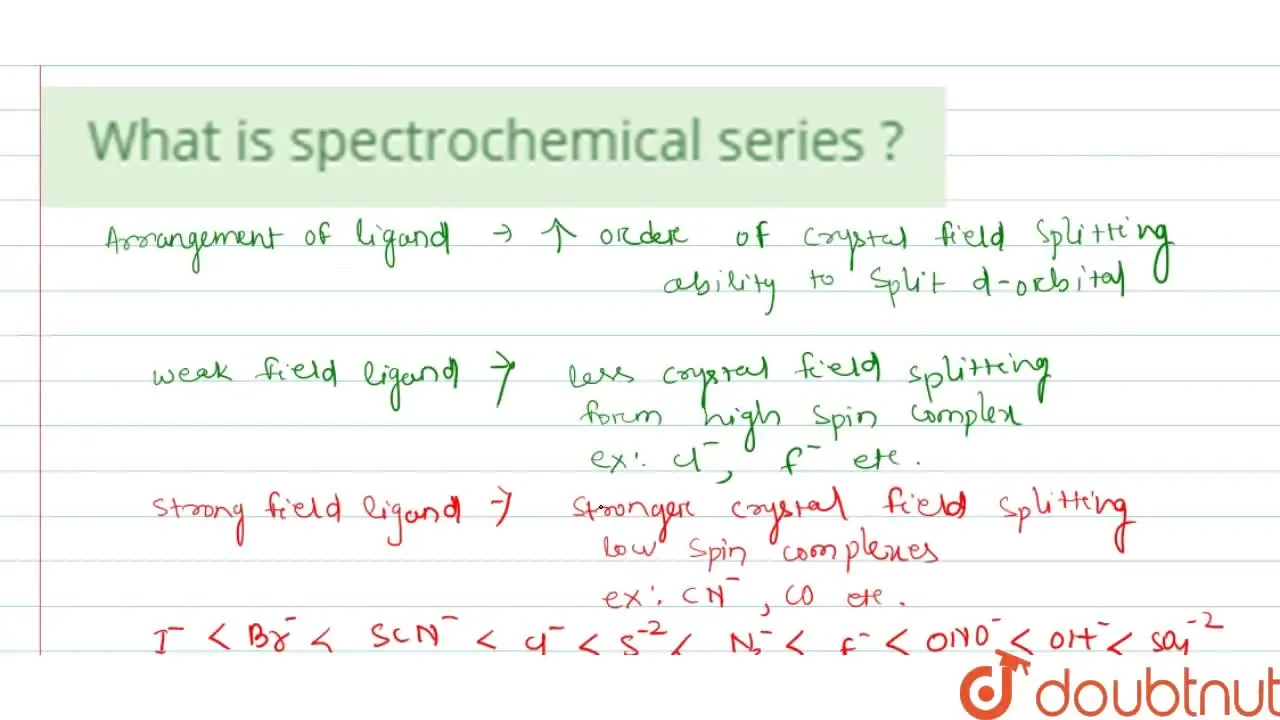 What is spectrochemical series ?
Arrangement of ligand → ↑ order of crystal field splitting
ability to split d-orbital
weak field ligand → less crystal field splitting
form high spin complex
ex: Cl⁻, F⁻ etc.
strong field ligand → stronger crystal field splitting
low spin complexes
ex: CN⁻, CO etc.
I⁻ < Br⁻ < SCN⁻ < Cl⁻ < S⁻² < < F⁻ < ONO⁻ < OH⁻ <
doubtnut